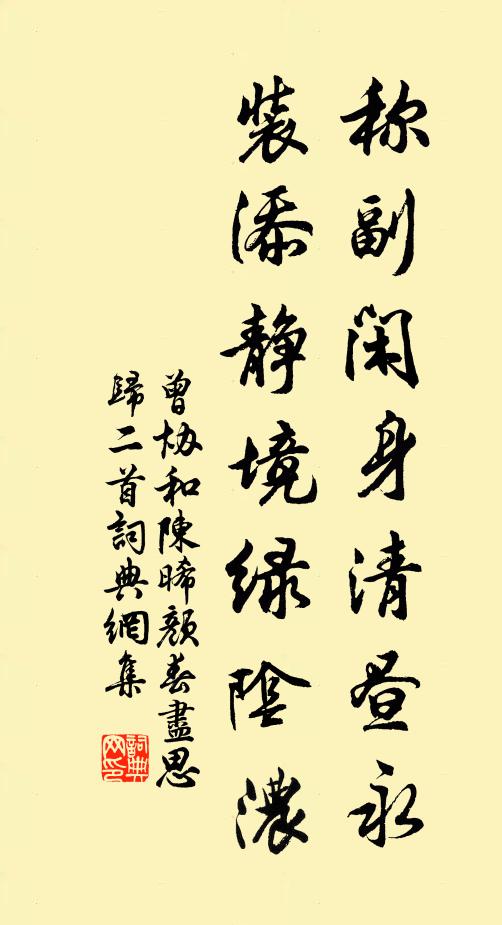 称副闲身清昼永
装添静境绿阴濃
曾协和陳晞顏春盡思
歸二首詞典網集
詞典網印